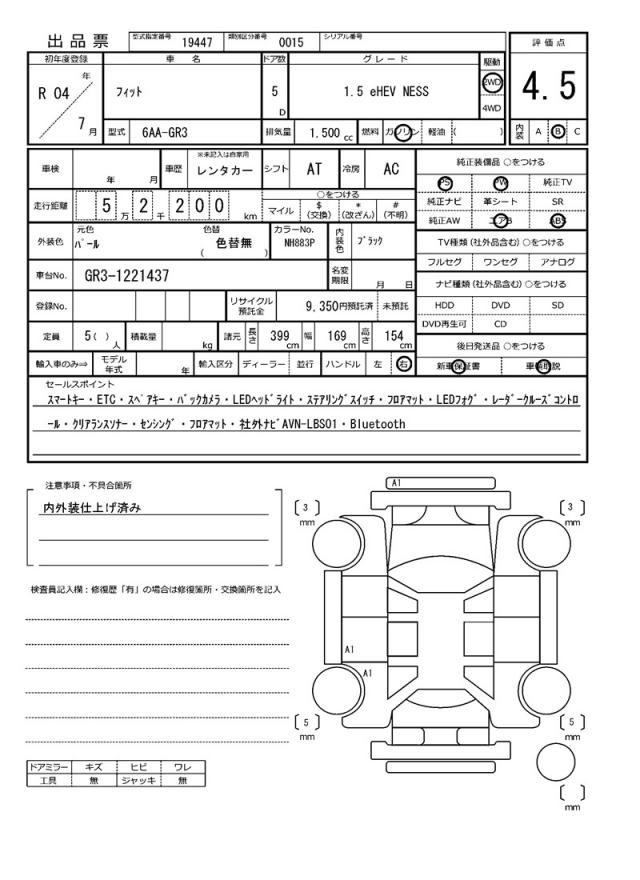 出品票 型式指定番号 19447 類別区分番号 0015 シリアル番号
評価点
4.5
内装 A B C
初年度登録 車名 ドア数 グレード 駆動
R 04 年 7 月 フィット 5 D 1.5 eHEV NESS 2WD 4WD
型式 6AA-GR3 排気量 1.500 cc 燃料 ガソリン 軽油 ( )
車検 年 月 車歴 ※未記入は自家用 レンタカー シフト AT 冷房 AC
走行距離 5 万 2 千 2 0 0 km
○をつける
マイル $ (交換) * (改ざん) # (不明)
外装色 元色 パール 色替 ( 色替無 ) カラーNo. NH883P 内装色 ブラック
車台No. GR3-1221437 名変期限 月 日
登録No. リサイクル預託金 9,350円預託済 未預託
定員 5( ) 人 積載量 kg 諸元 長さ 399 cm 幅 169 cm 高さ 154 cm
輸入車のみ⇒ モデル年式 年 輸入区分 ディーラー 並行 ハンドル 左 右
純正装備品 ○をつける
PS PW 純正TV
純正ナビ 革シート SR
純正AW エアB ABS
TV種類(社外品含む)○をつける
フルセグ ワンセグ アナログ
ナビ種類(社外品含む)○をつける
HDD DVD SD
DVD再生可 CD
後日発送品 ○をつける
新車保証書 車輌取説
セールスポイント
スマートキー・ETC・スペアキー・バックカメラ・LEDヘッドライト・ステアリングスイッチ・フロアマット・LEDフォグ・レーダークルーズコントロ
ール・クリアランスソナー・センシング・フロアマット・社外ナビAVN-LBS01・Bluetooth
注意事項・不具合箇所
内外装仕上げ済み
検査員記入欄：修復歴「有」の場合は修復箇所・交換箇所を記入
ドアミラー キズ ヒビ ワレ
工具 無 ジャッキ 無
A1
3 mm
3 mm
A1
A1
5 mm
5 mm
mm